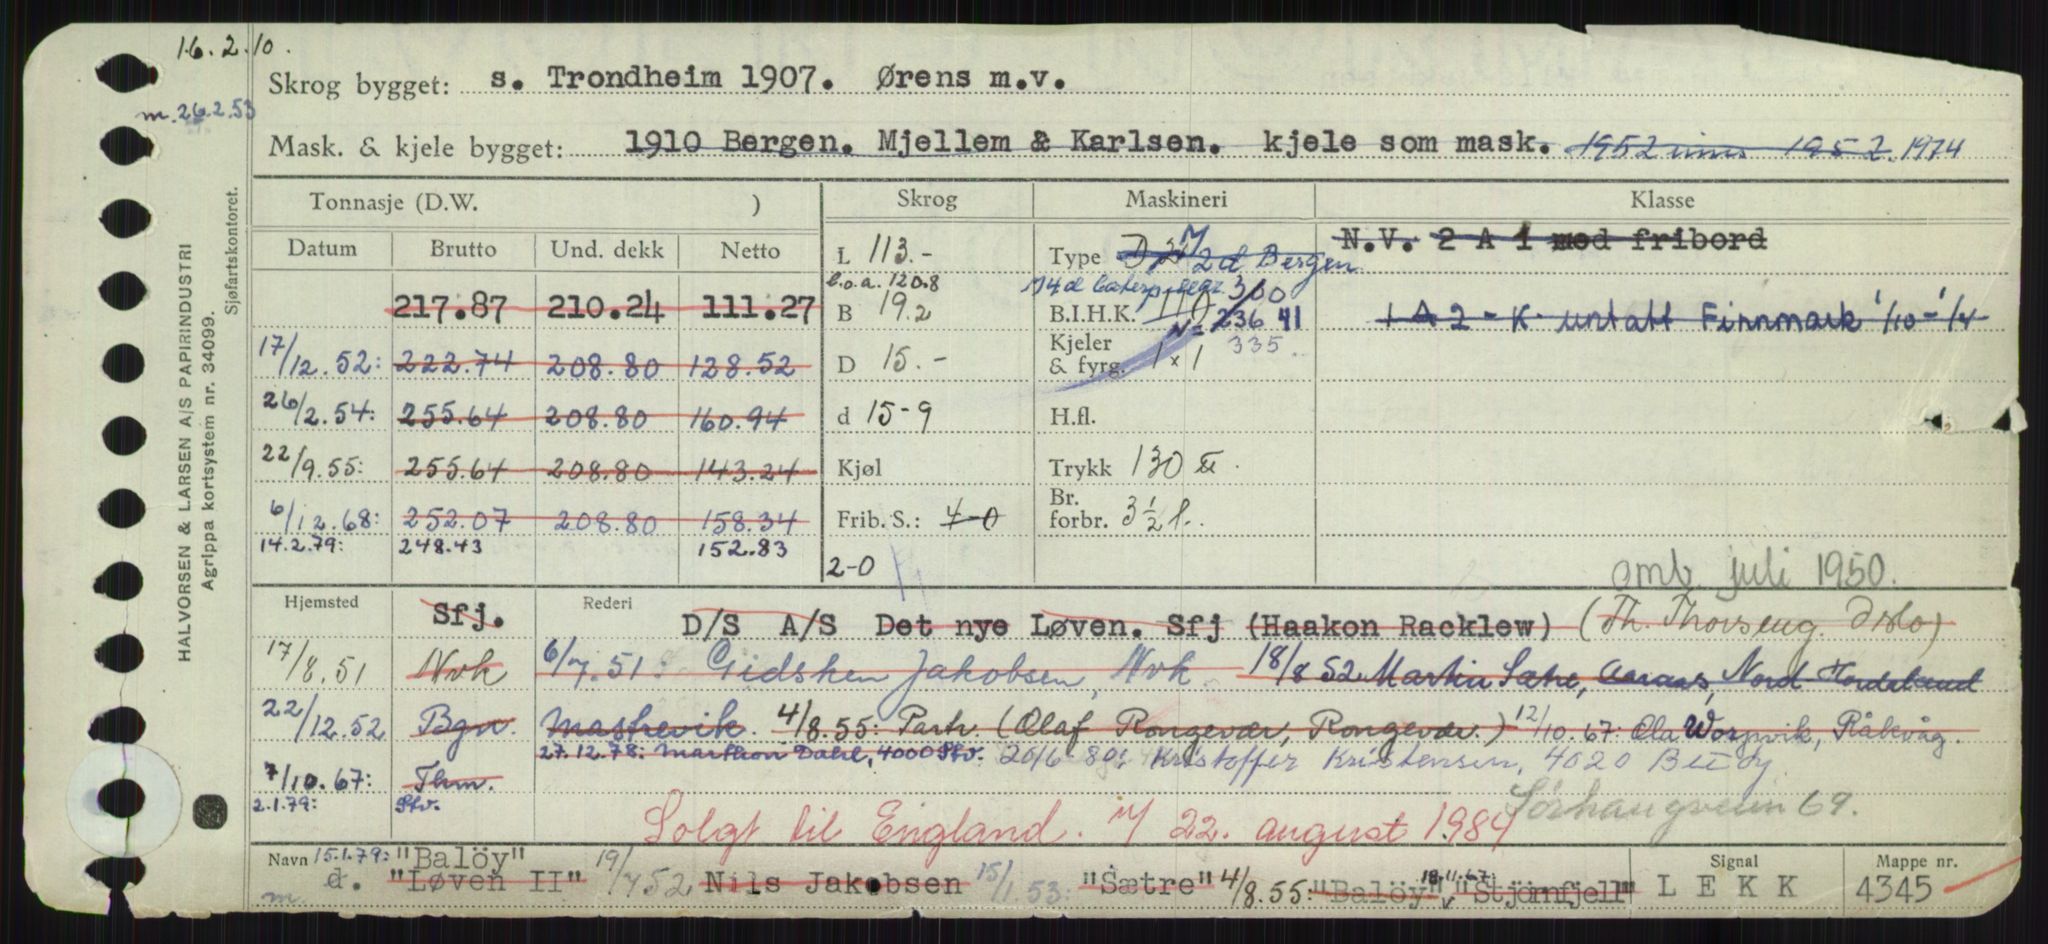 16.2.10.
Skrog bygget: s. Trondheim 1907. Ørens m.v.
m. 26.2.53
Mask. & kjele bygget: 1910 Bergen. Mjellem & Karlsen. kjele som mask. 1952 1952. 1974
HALVORSEN & LARSEN A/S PAPIRINDUSTRI
Agrippa kortsystem nr. 34099.
Sjøfartskontoret.
Tonnasje (D.W. ) Skrog Maskineri Klasse
Datum Brutto Und. dekk Netto
L 113.- Type 2d Bergen N.V. 2 A 1 med fribord
l.o.a. 120.8
217.87 210.24 111.27 B 19.2 B.I.H.K. 110 300 236 41 1 A 2 - K untatt Finnmark 1/10 - 1/4
17/12.52: 222.74 208.80 128.52 D 15.- Kjeler & fyrg. 1 x 1 335.
26/2.54: 255.64 208.80 160.94 d 15-9 H.fl.
22/9.55: 255.64 208.80 143.24 Kjøl Trykk 130
6/12.68: 252.07 208.80 158.34 Frib. S.: 4-0 Br. forbr. 3 1/2
14.2.79: 248.43 152.83 2-0
omb. juli 1950.
Hjemsted Sfj. Rederi D/S A/S Det nye Løven. Sfj (Haakon Racklew) (Th. Thorseng. Oslo)
17/8.51 Nvk 6/7.51: Gidsken Jakobsen, Nvk 18/8 52 Martin Sætre, Nord Hordaland
22/12.52 Bgn. Mastrevik. 4/8.55: Partr. (Olaf Rongevær, Rongevær.) 12/10.67: Ola Worpvik, Råkvåg.
27.12.78: Marthon Dahl, 4000 Stv. 20/6-80: Kristoffer Kristensen, 4020
7/10.67: Thm.
2.1.79: Stv. Sörhaugveien 69.
Solgt til England. 22. august 1984
Navn 15.1.79: "Balöy"
d. "Løven II" 19/7 52 Nils Jakobsen 15/1.53: "Sætre" 4/8.55: "Balöy", 18.11.67: "Stjörnfjell"
m.
Signal LEKK
Mappe nr. 4345